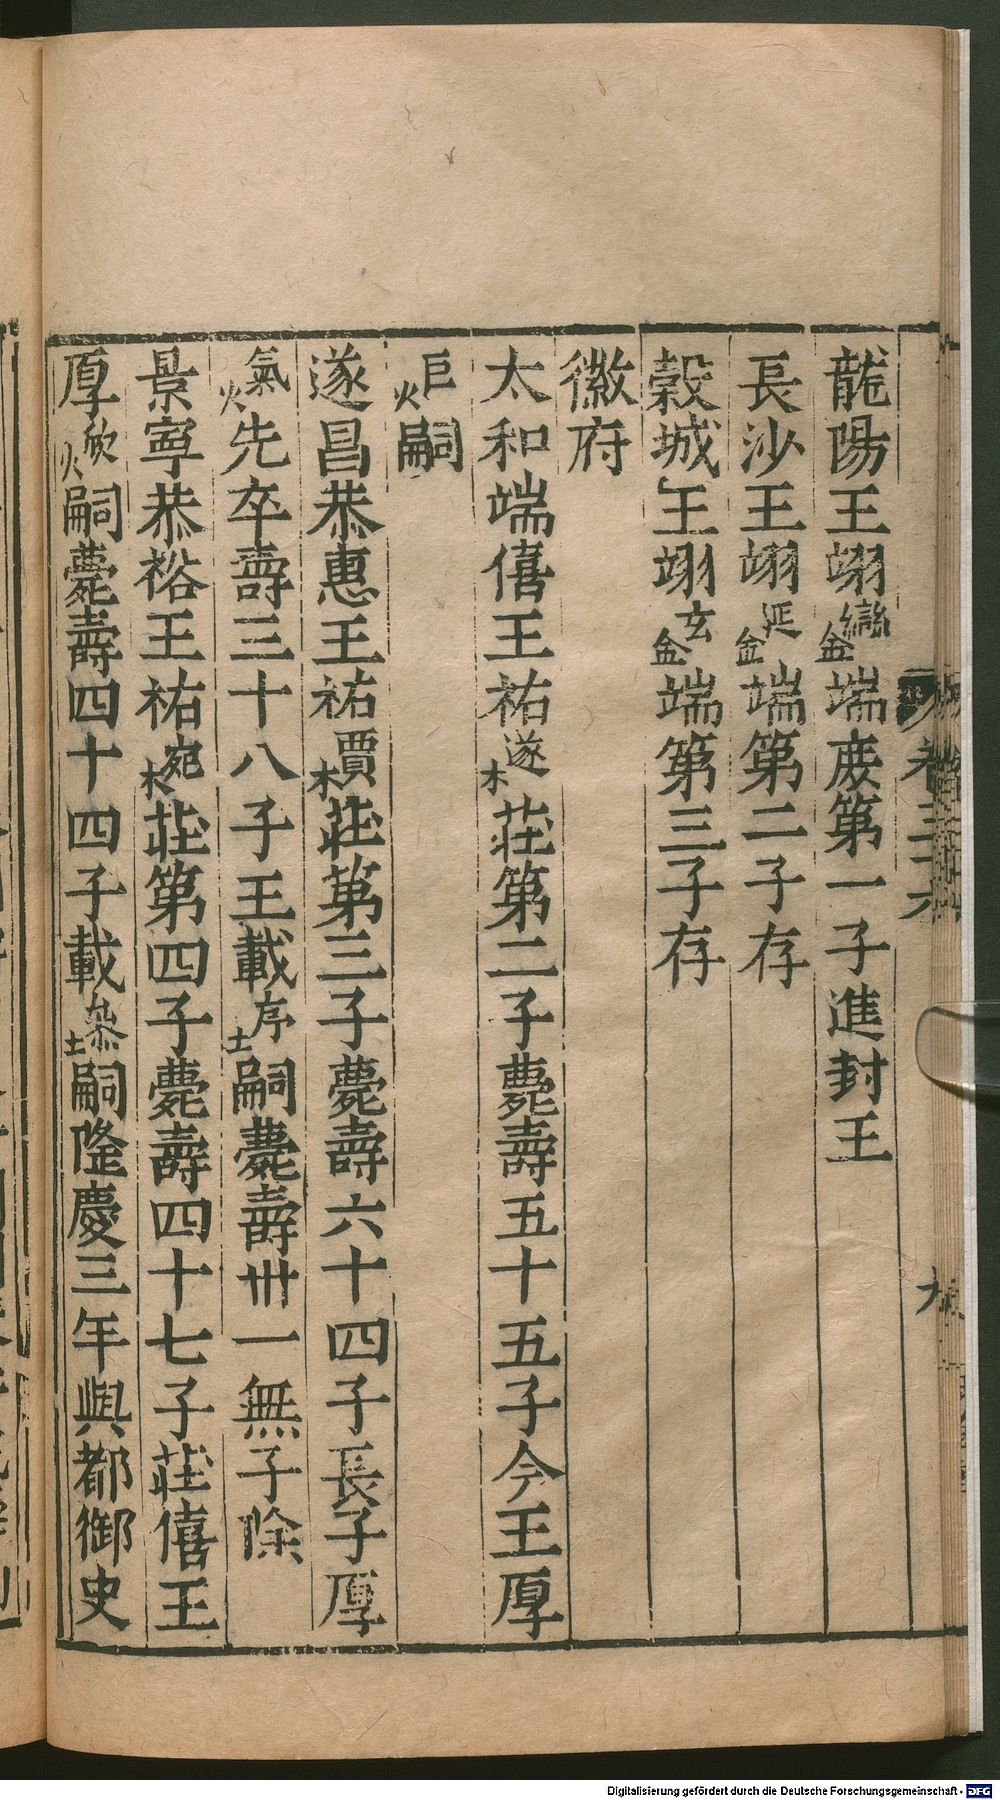 卷三十六
九
龍陽王翊𨰻端庶第一子進封王
長沙王翊鋋端第二子存
穀城王翊鉉端第三子存
徽府
太和端僖王祐檖莊第二子薨壽五十五子今王厚
炬嗣
遂昌恭惠王祐檟莊第三子薨壽六十四子長子厚
熂先卒壽三十八子王載垿嗣薨壽卅一無子除
景寧恭裕王祐椀莊第四子薨壽四十七子莊僖王
厚焮嗣薨壽四十四子載塨嗣隆慶三年與都御史
Digitalisierung gefördert durch die Deutsche Forschungsgemeinschaft - DFG